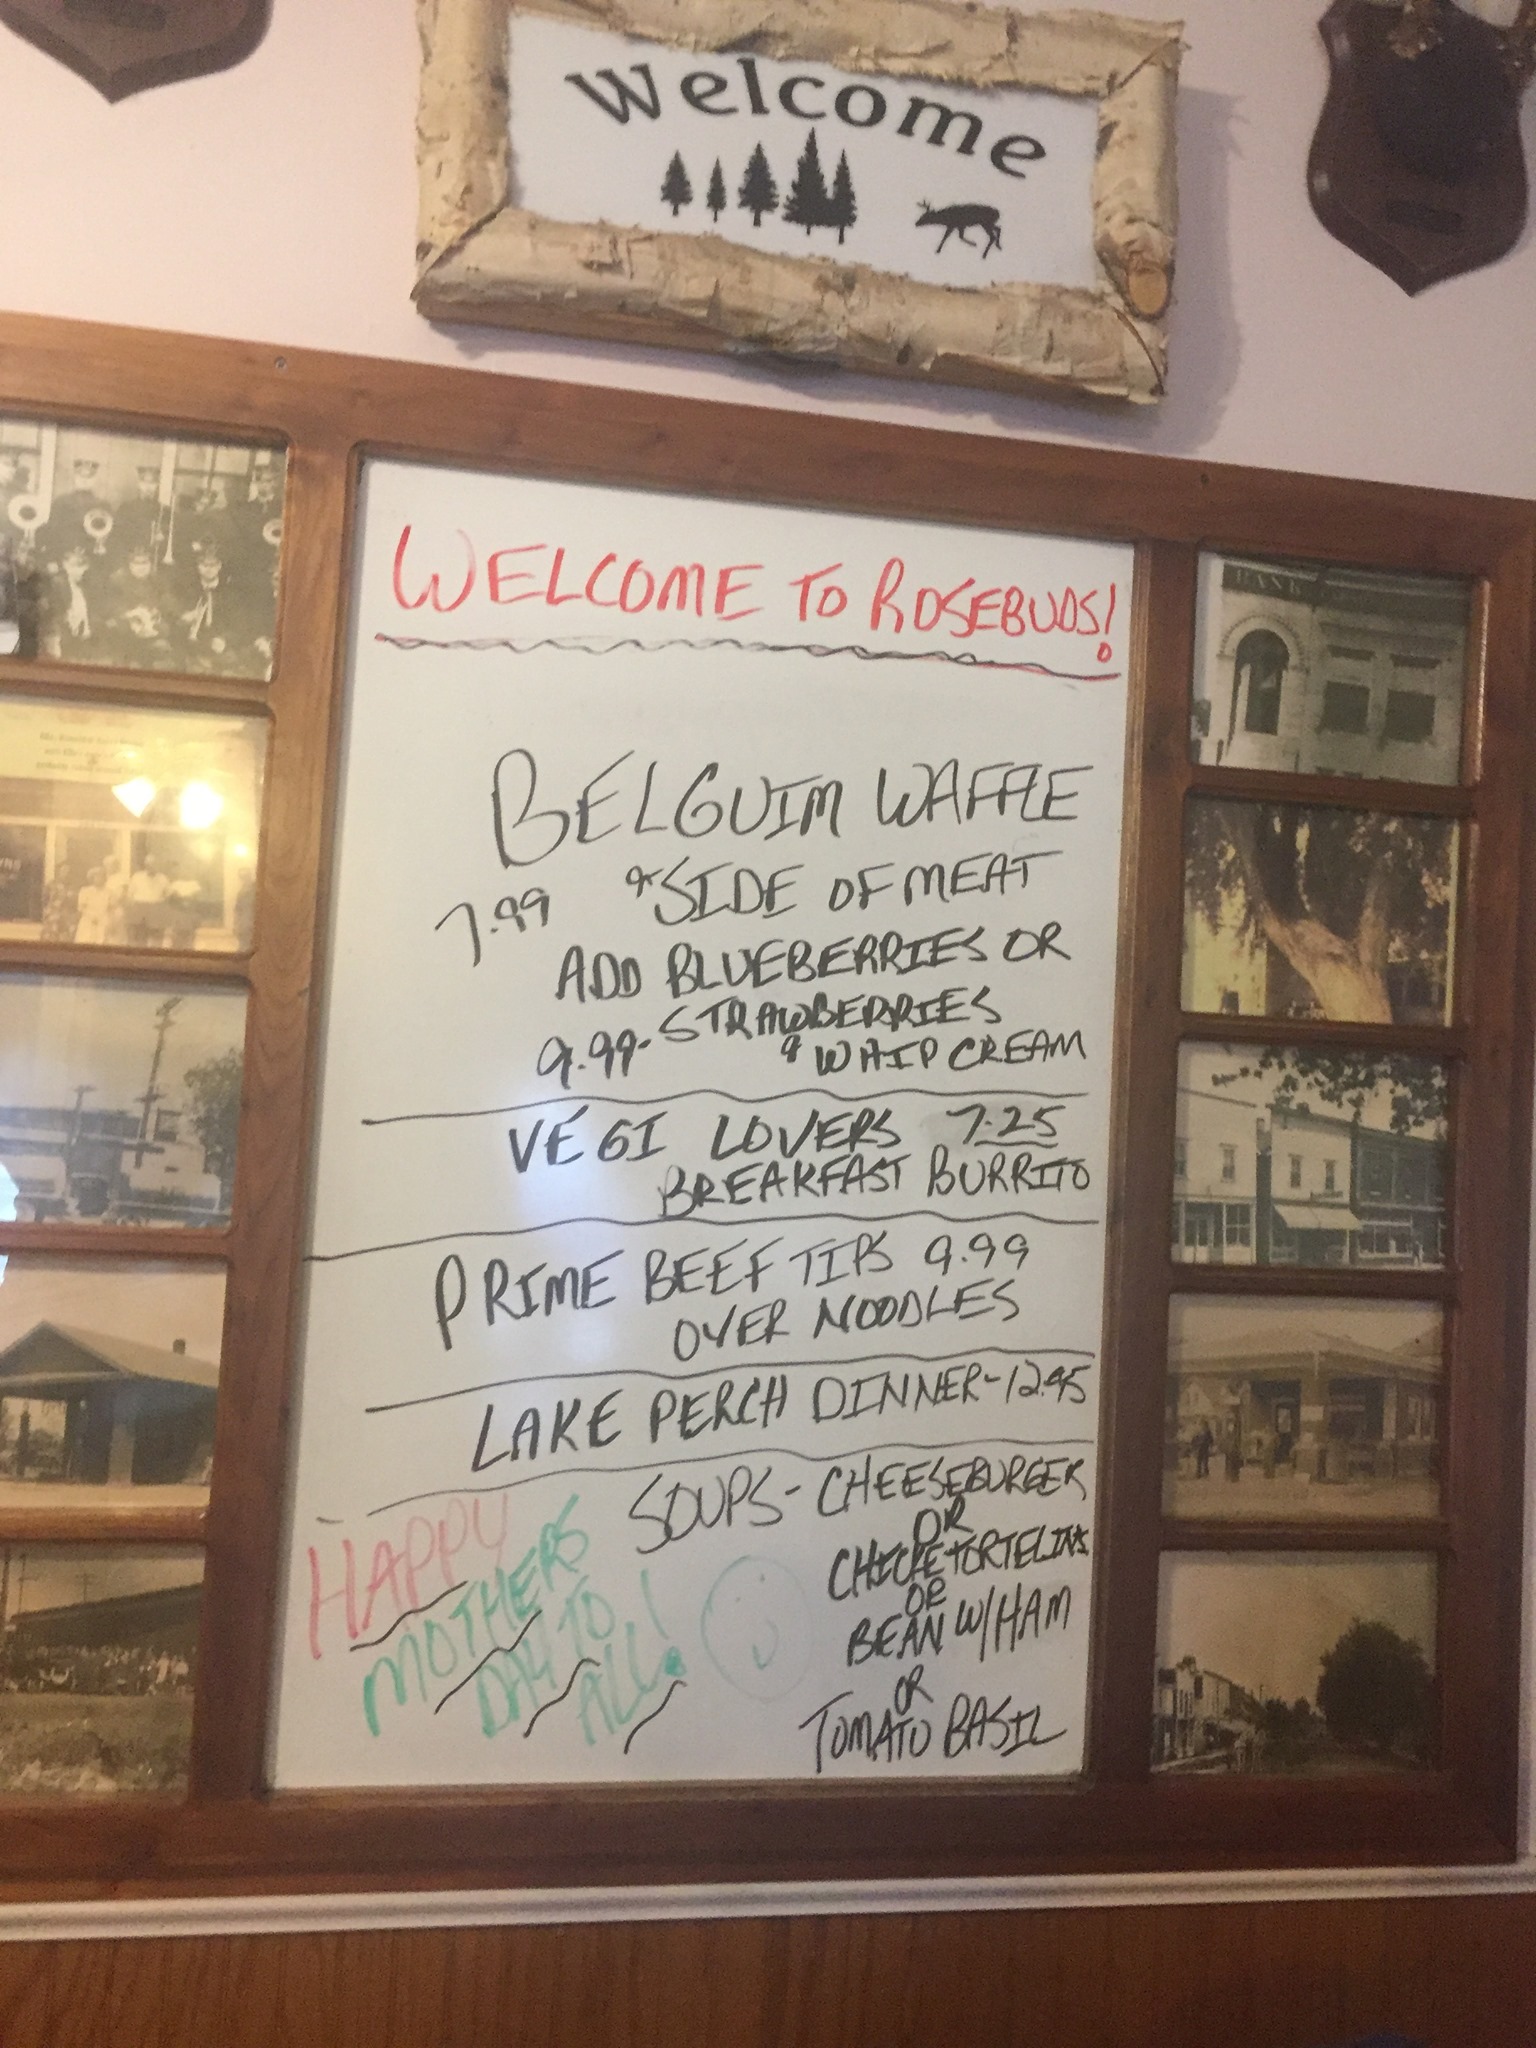 Welcome
WELCOME TO ROSEBUDS!
BELGUIM WAFFLE
7.99 & SIDE OF MEAT
ADD BLUEBERRIES OR
9.99- STRAWBERRIES
& WHIP CREAM
VEGI LOVERS 7.25
BREAKFAST BURRITO
PRIME BEEF TIPS 9.99
OVER NOODLES
LAKE PERCH DINNER-12.95
SOUPS- CHEESEBURGER
OR
TORTELINI
OR
BEAN W/HAM
OR
TOMATO BASIL
HAPPY
MOTHERS
DAY TO
ALL!
BANK